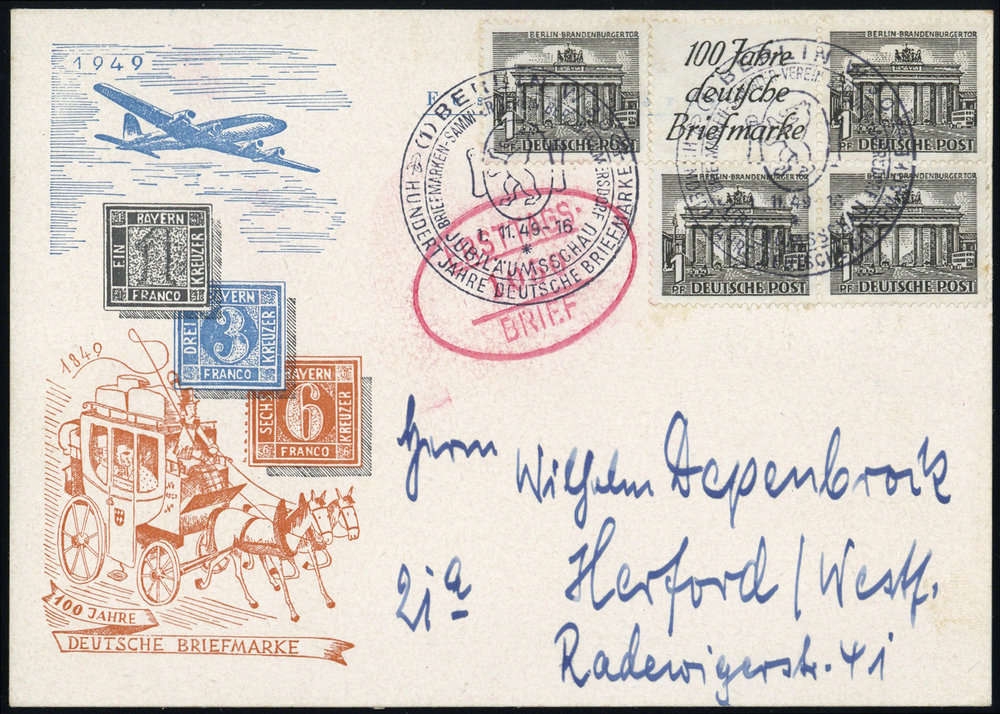 1949
BAYERN
EIN
1
KREUZER
FRANCO
BAYERN
DREI
3
KREUZER
FRANCO
BAYERN
SECHS
6
KREUZER
FRANCO
1849
100 JAHRE
DEUTSCHE BRIEFMARKE
BERLIN-BRANDENBURGER TOR
1
PF
DEUTSCHE POST
100 Jahre
deutsche
Briefmarke
BERLIN-BRANDENBURGER TOR
1
PF
DEUTSCHE POST
1
PF
DEUTSCHE POST
1
PF
DEUTSCHE POST
(1) BERLIN
11.49-16
JUBILÄUMSSCHAU
HUNDERT JAHRE DEUTSCHE BRIEFMARKE
BERLIN
VEREIN
11.49-16
BRIEF
Herrn
Wilhelm Depenbrock
21a
Herford/Westf.
Radewigerstr. 41